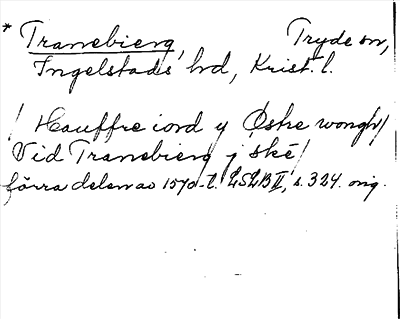 * Tranebierg, Tryde sn,
Ingelstads hd, Krist. l.
/ Hauffre iord y Østre wongh/
Vid Tranebierg j ské/
förra delen av 1570-t. LSLB II, s. 324. orig.